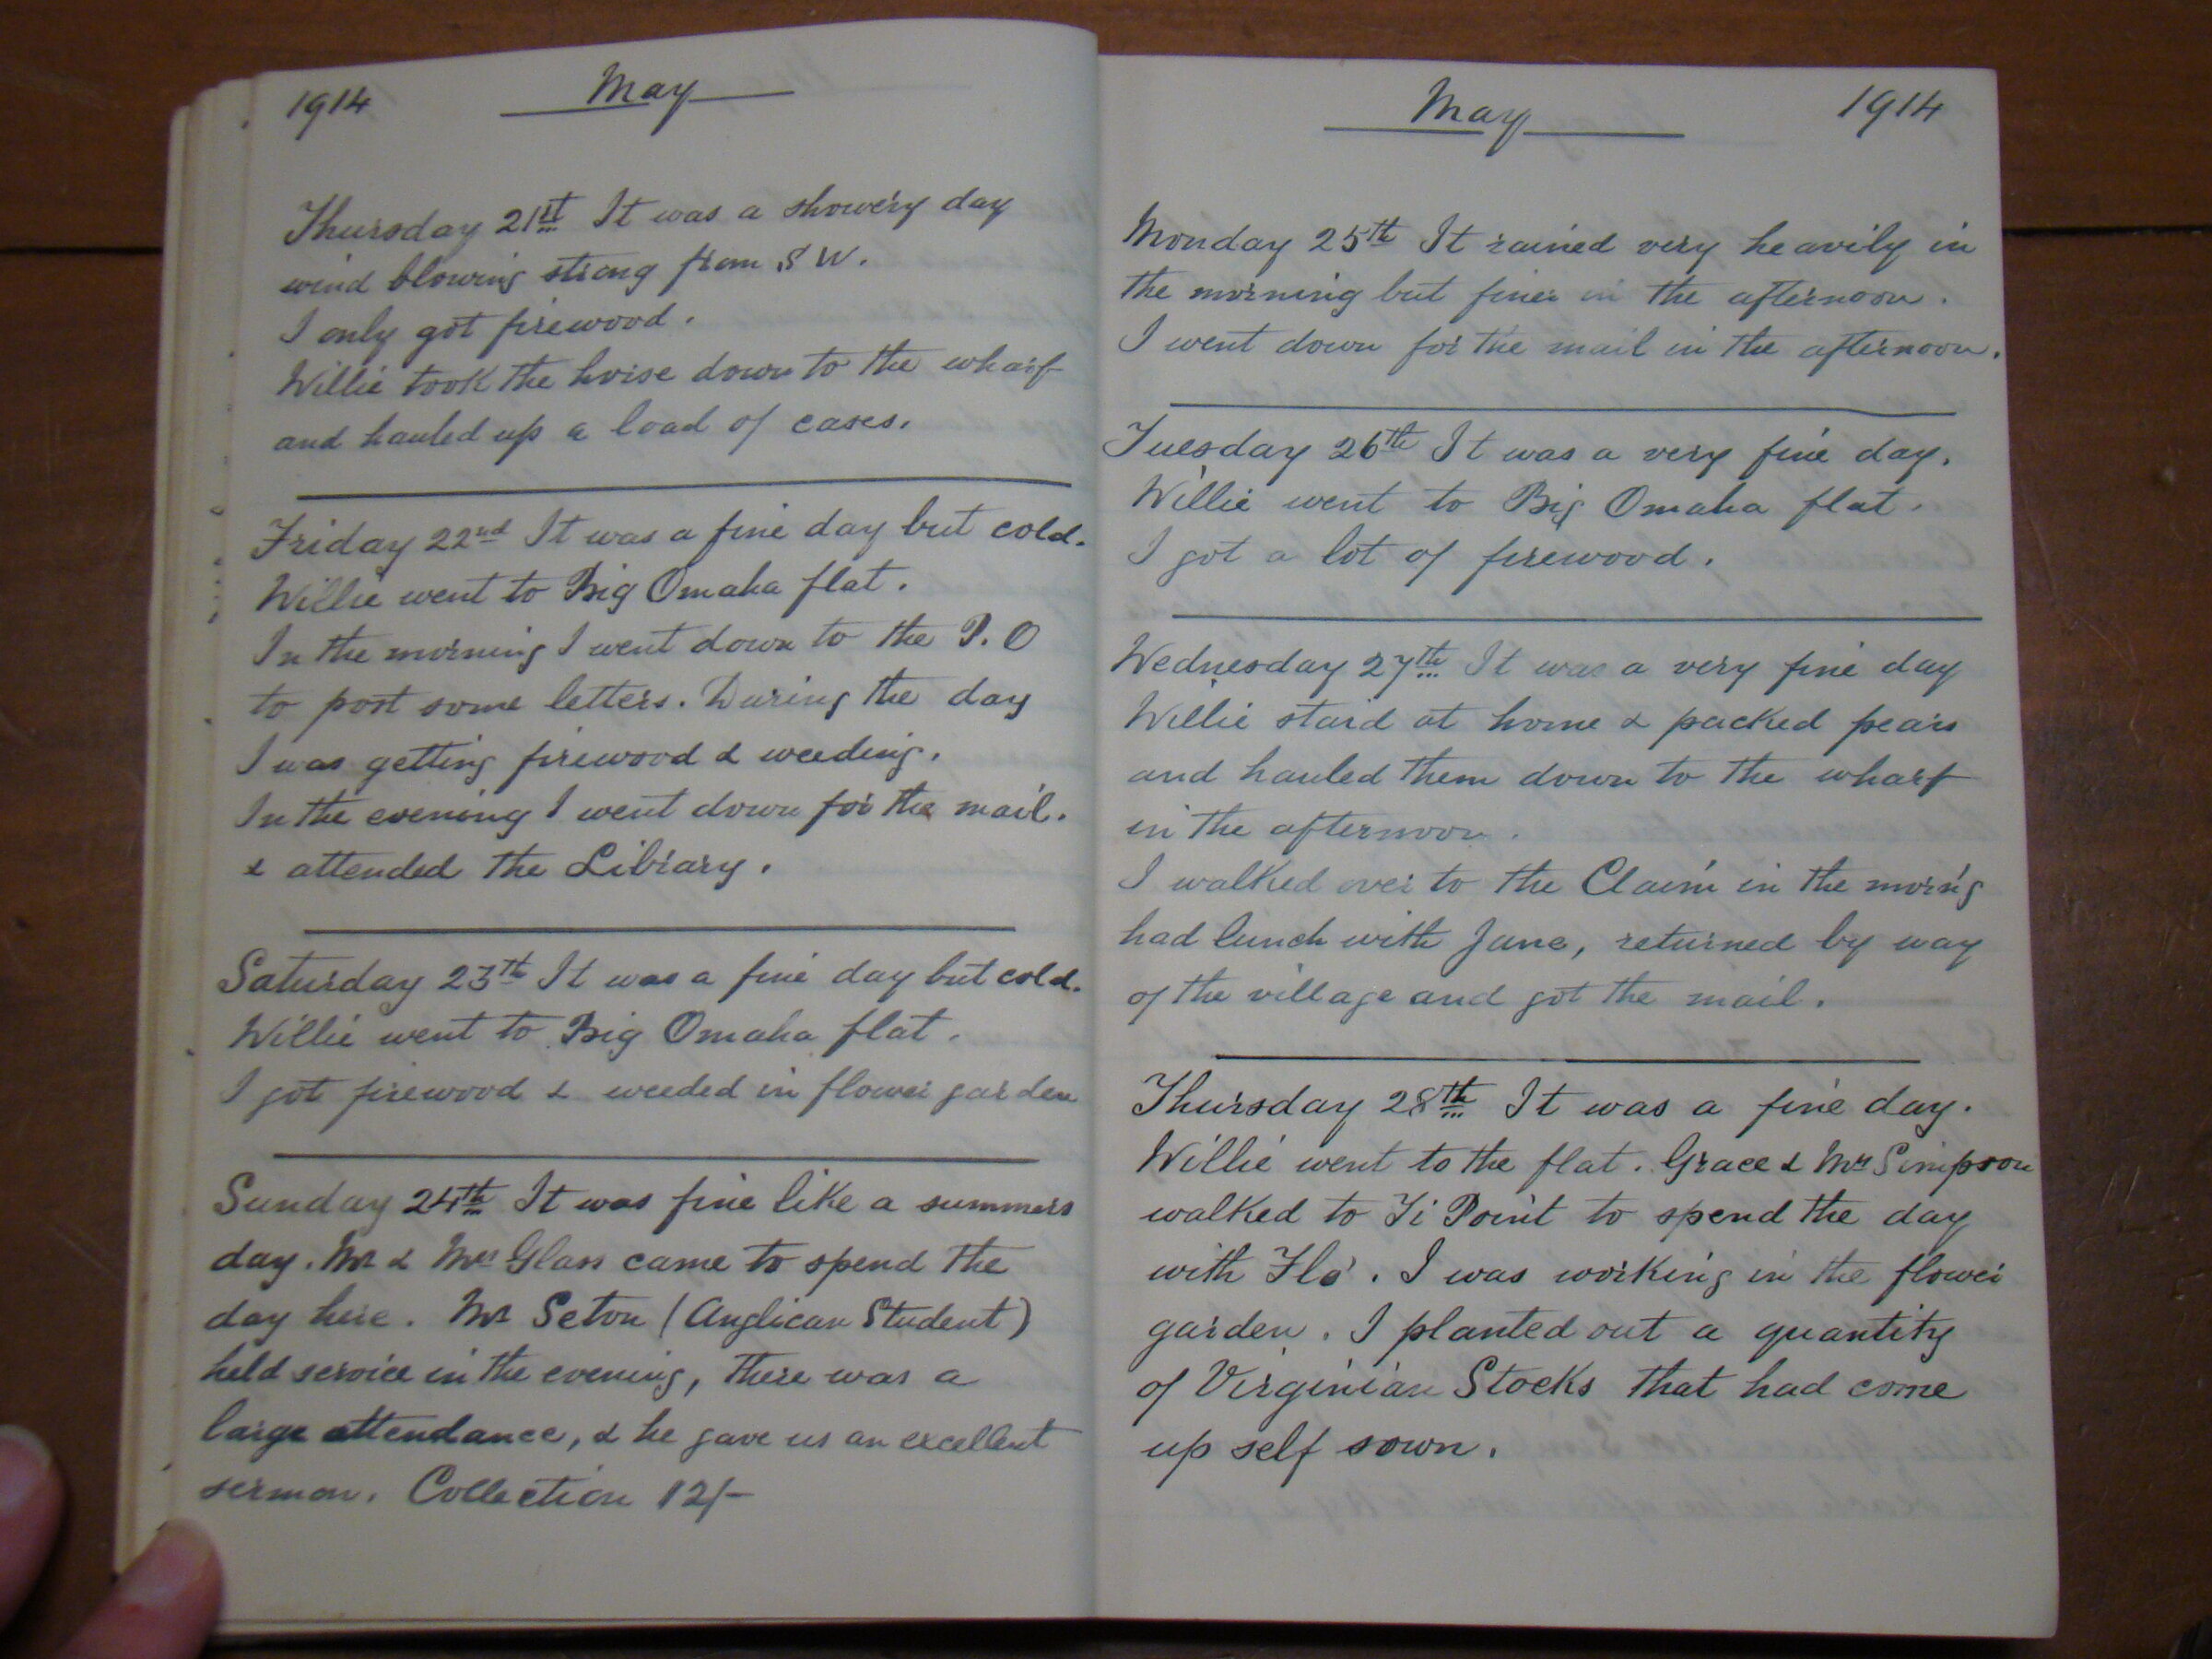 1914 May
Thursday 21st It was a showery day
wind blowing strong from S W.
I only got firewood.
Willie took the horse down to the wharf
and hauled up a load of cases.
Friday 22nd It was a fine day but cold.
Willie went to Big Omaha flat.
In the morning I went down to the P. O
to post some letters. During the day
I was getting firewood & weeding.
In the evening I went down for the mail.
& attended the Library.
Saturday 23th It was a fine day but cold.
Willie went to Big Omaha flat.
I got firewood & weeded in flower garden
Sunday 24th It was fine like a summers
day. Mr & Mrs Glass came to spend the
day here. Mr Seton (Anglican Student)
held service in the evening, there was a
large attendance, & he gave us an excellent
sermon. Collection 12/-
May 1914
Monday 25th It rained very heavily in
the morning but finer in the afternoon.
I went down for the mail in the afternoon.
Tuesday 26th It was a very fine day.
Willie went to Big Omaha flat.
I got a lot of firewood.
Wednesday 27th It was a very fine day
Willie staid at home & packed pears
and hauled them down to the wharf
in the afternoon.
I walked over to the Claim in the morn'g
had lunch with Jane, returned by way
of the village and got the mail.
Thursday 28th It was a fine day.
Willie went to the flat. Grace & Mrs Simpson
walked to Ti Point to spend the day
with Flo'. I was working in the flower
garden. I planted out a quantity
of Virginian Stocks that had come
up self sown.